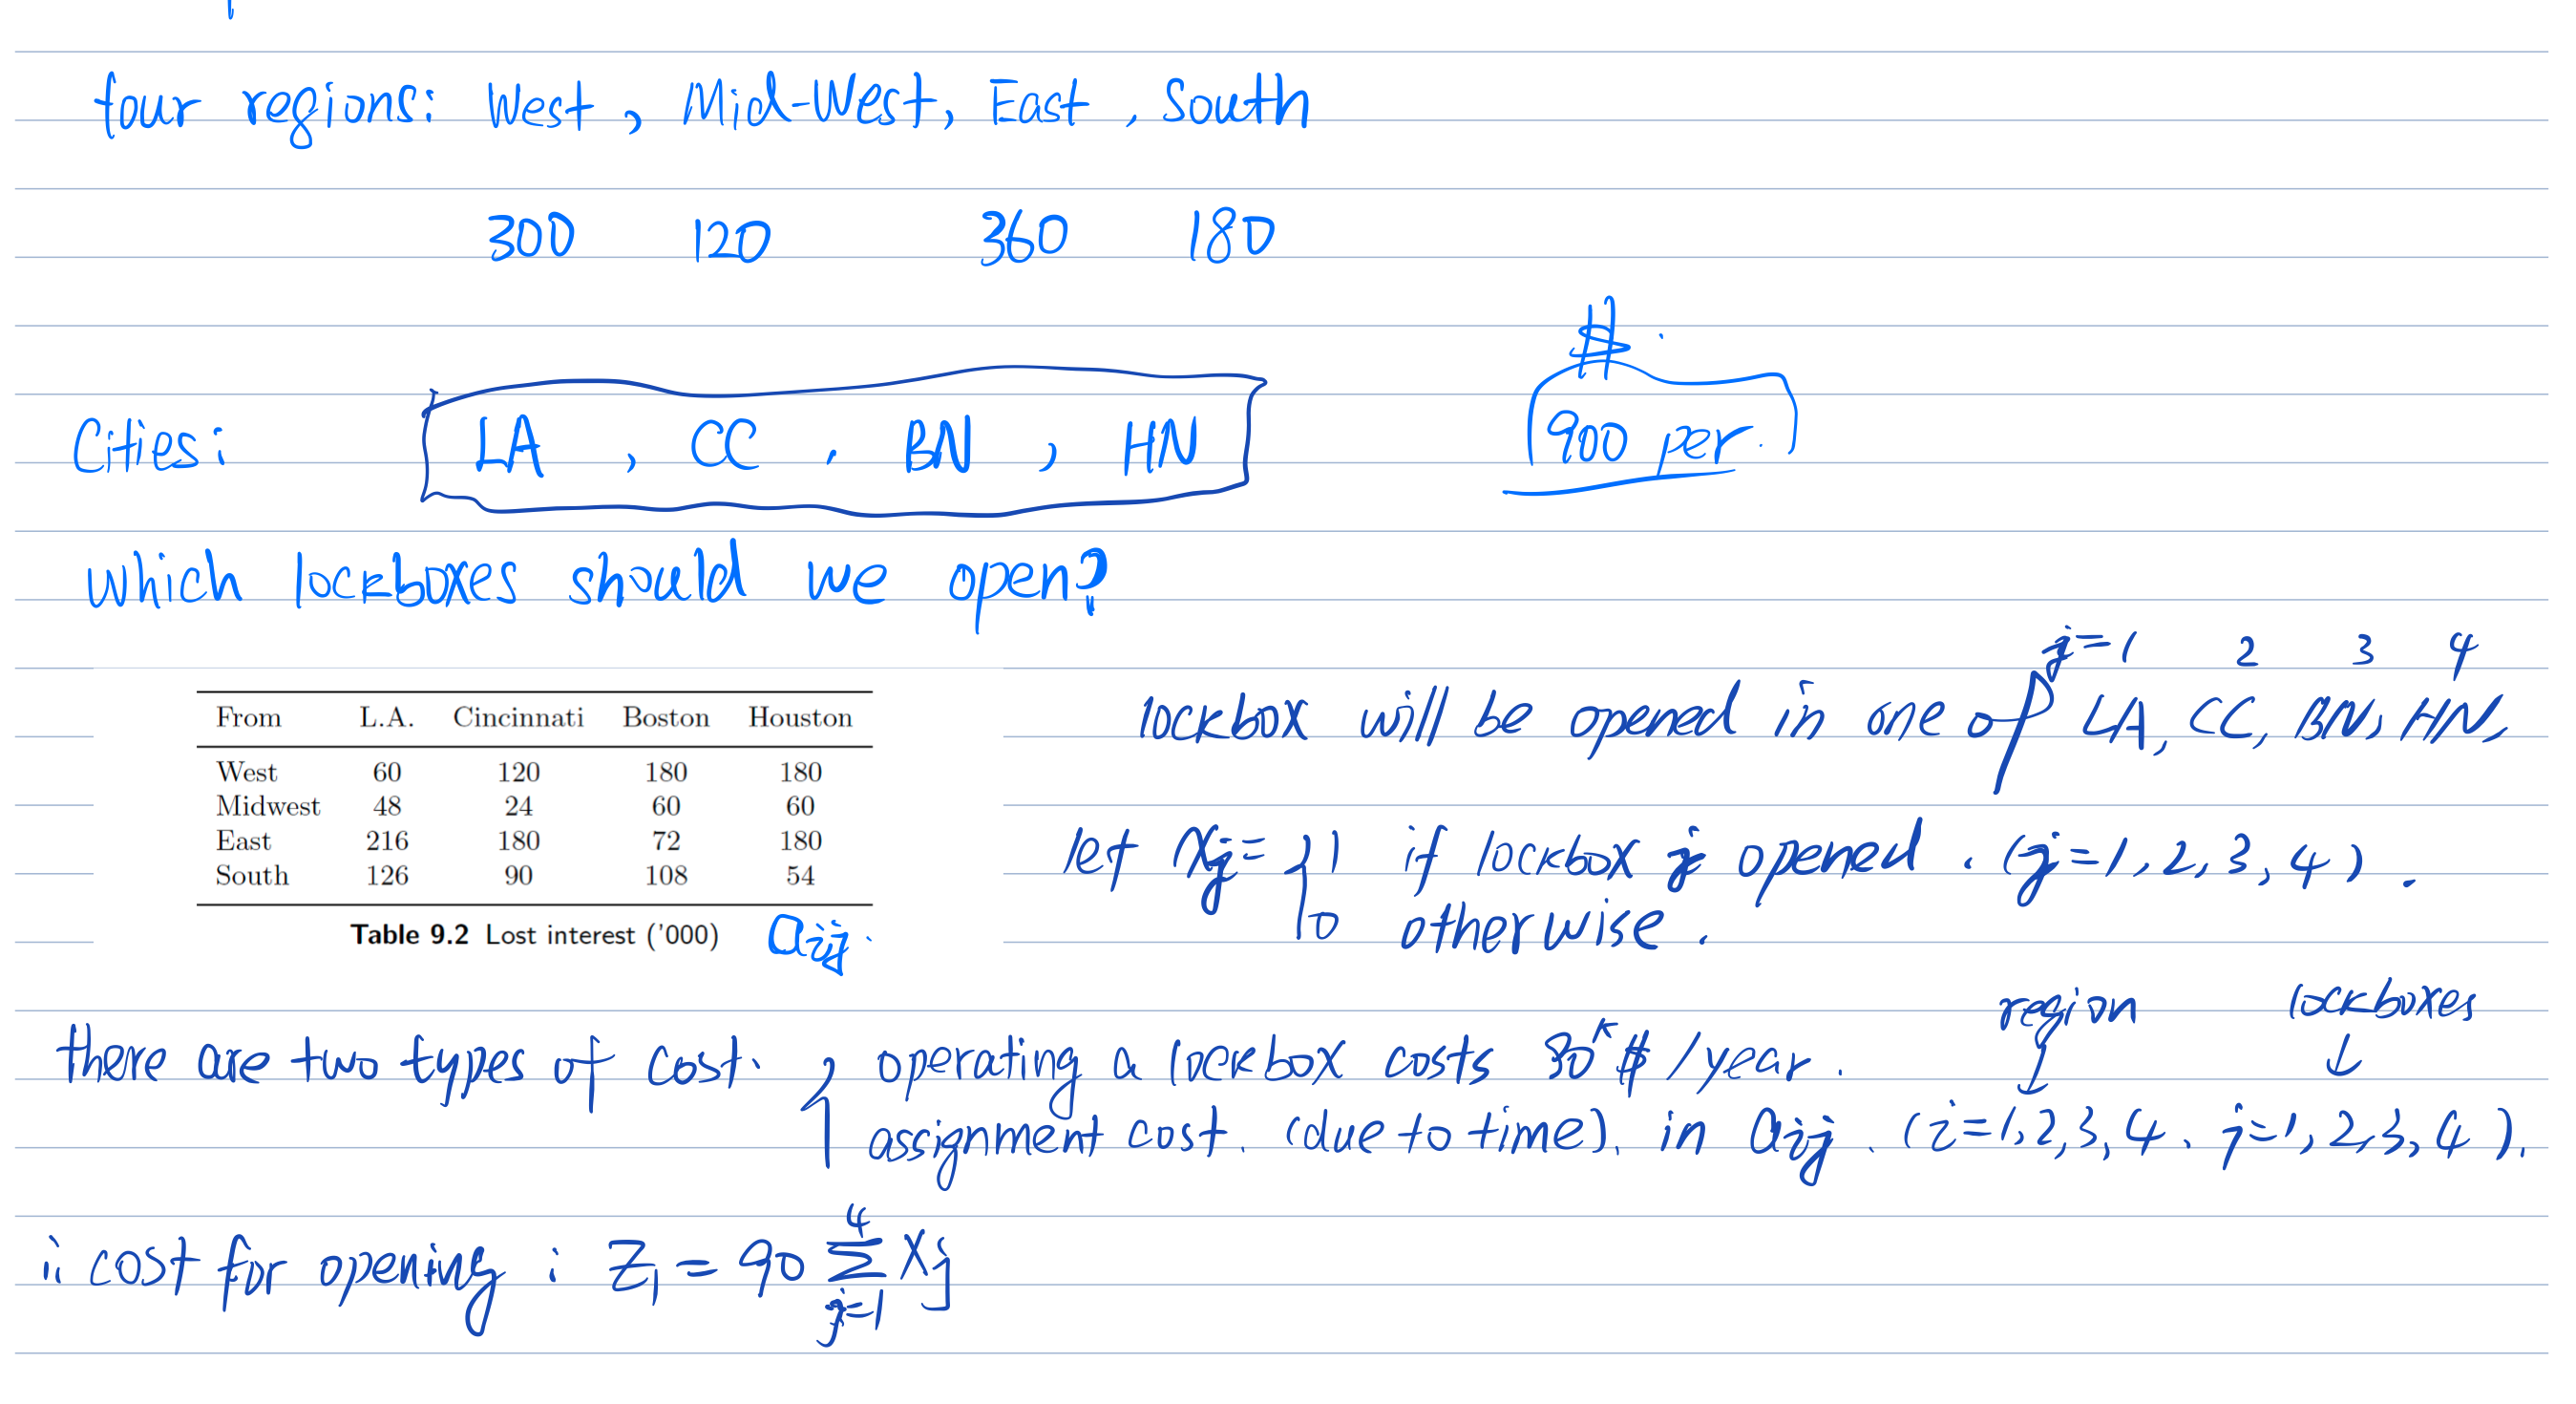 four regions: West, Mid-West, East, South
300 120 360 180
$
Cities: LA, CC, BN, HN 900 per.
which lockboxes should we open?
j=1 2 3 4
lockbox will be opened in one of LA, CC, BN, HN,
From L.A. Cincinnati Boston Houston
West 60 120 180 180
Midwest 48 24 60 60
East 216 180 72 180
South 126 90 108 54
Table 9.2 Lost interest ('000) aij.
let xj = { 1 if lockbox j opened. (j=1,2,3,4).
0 otherwise.
region lockboxes
there are two types of cost. { operating a lockbox costs 90K $/year.
assignment cost. (due to time). in aij. (i=1,2,3,4. j=1,2,3,4).
i: cost for opening: Z1 = 90 4∑j=1 xj